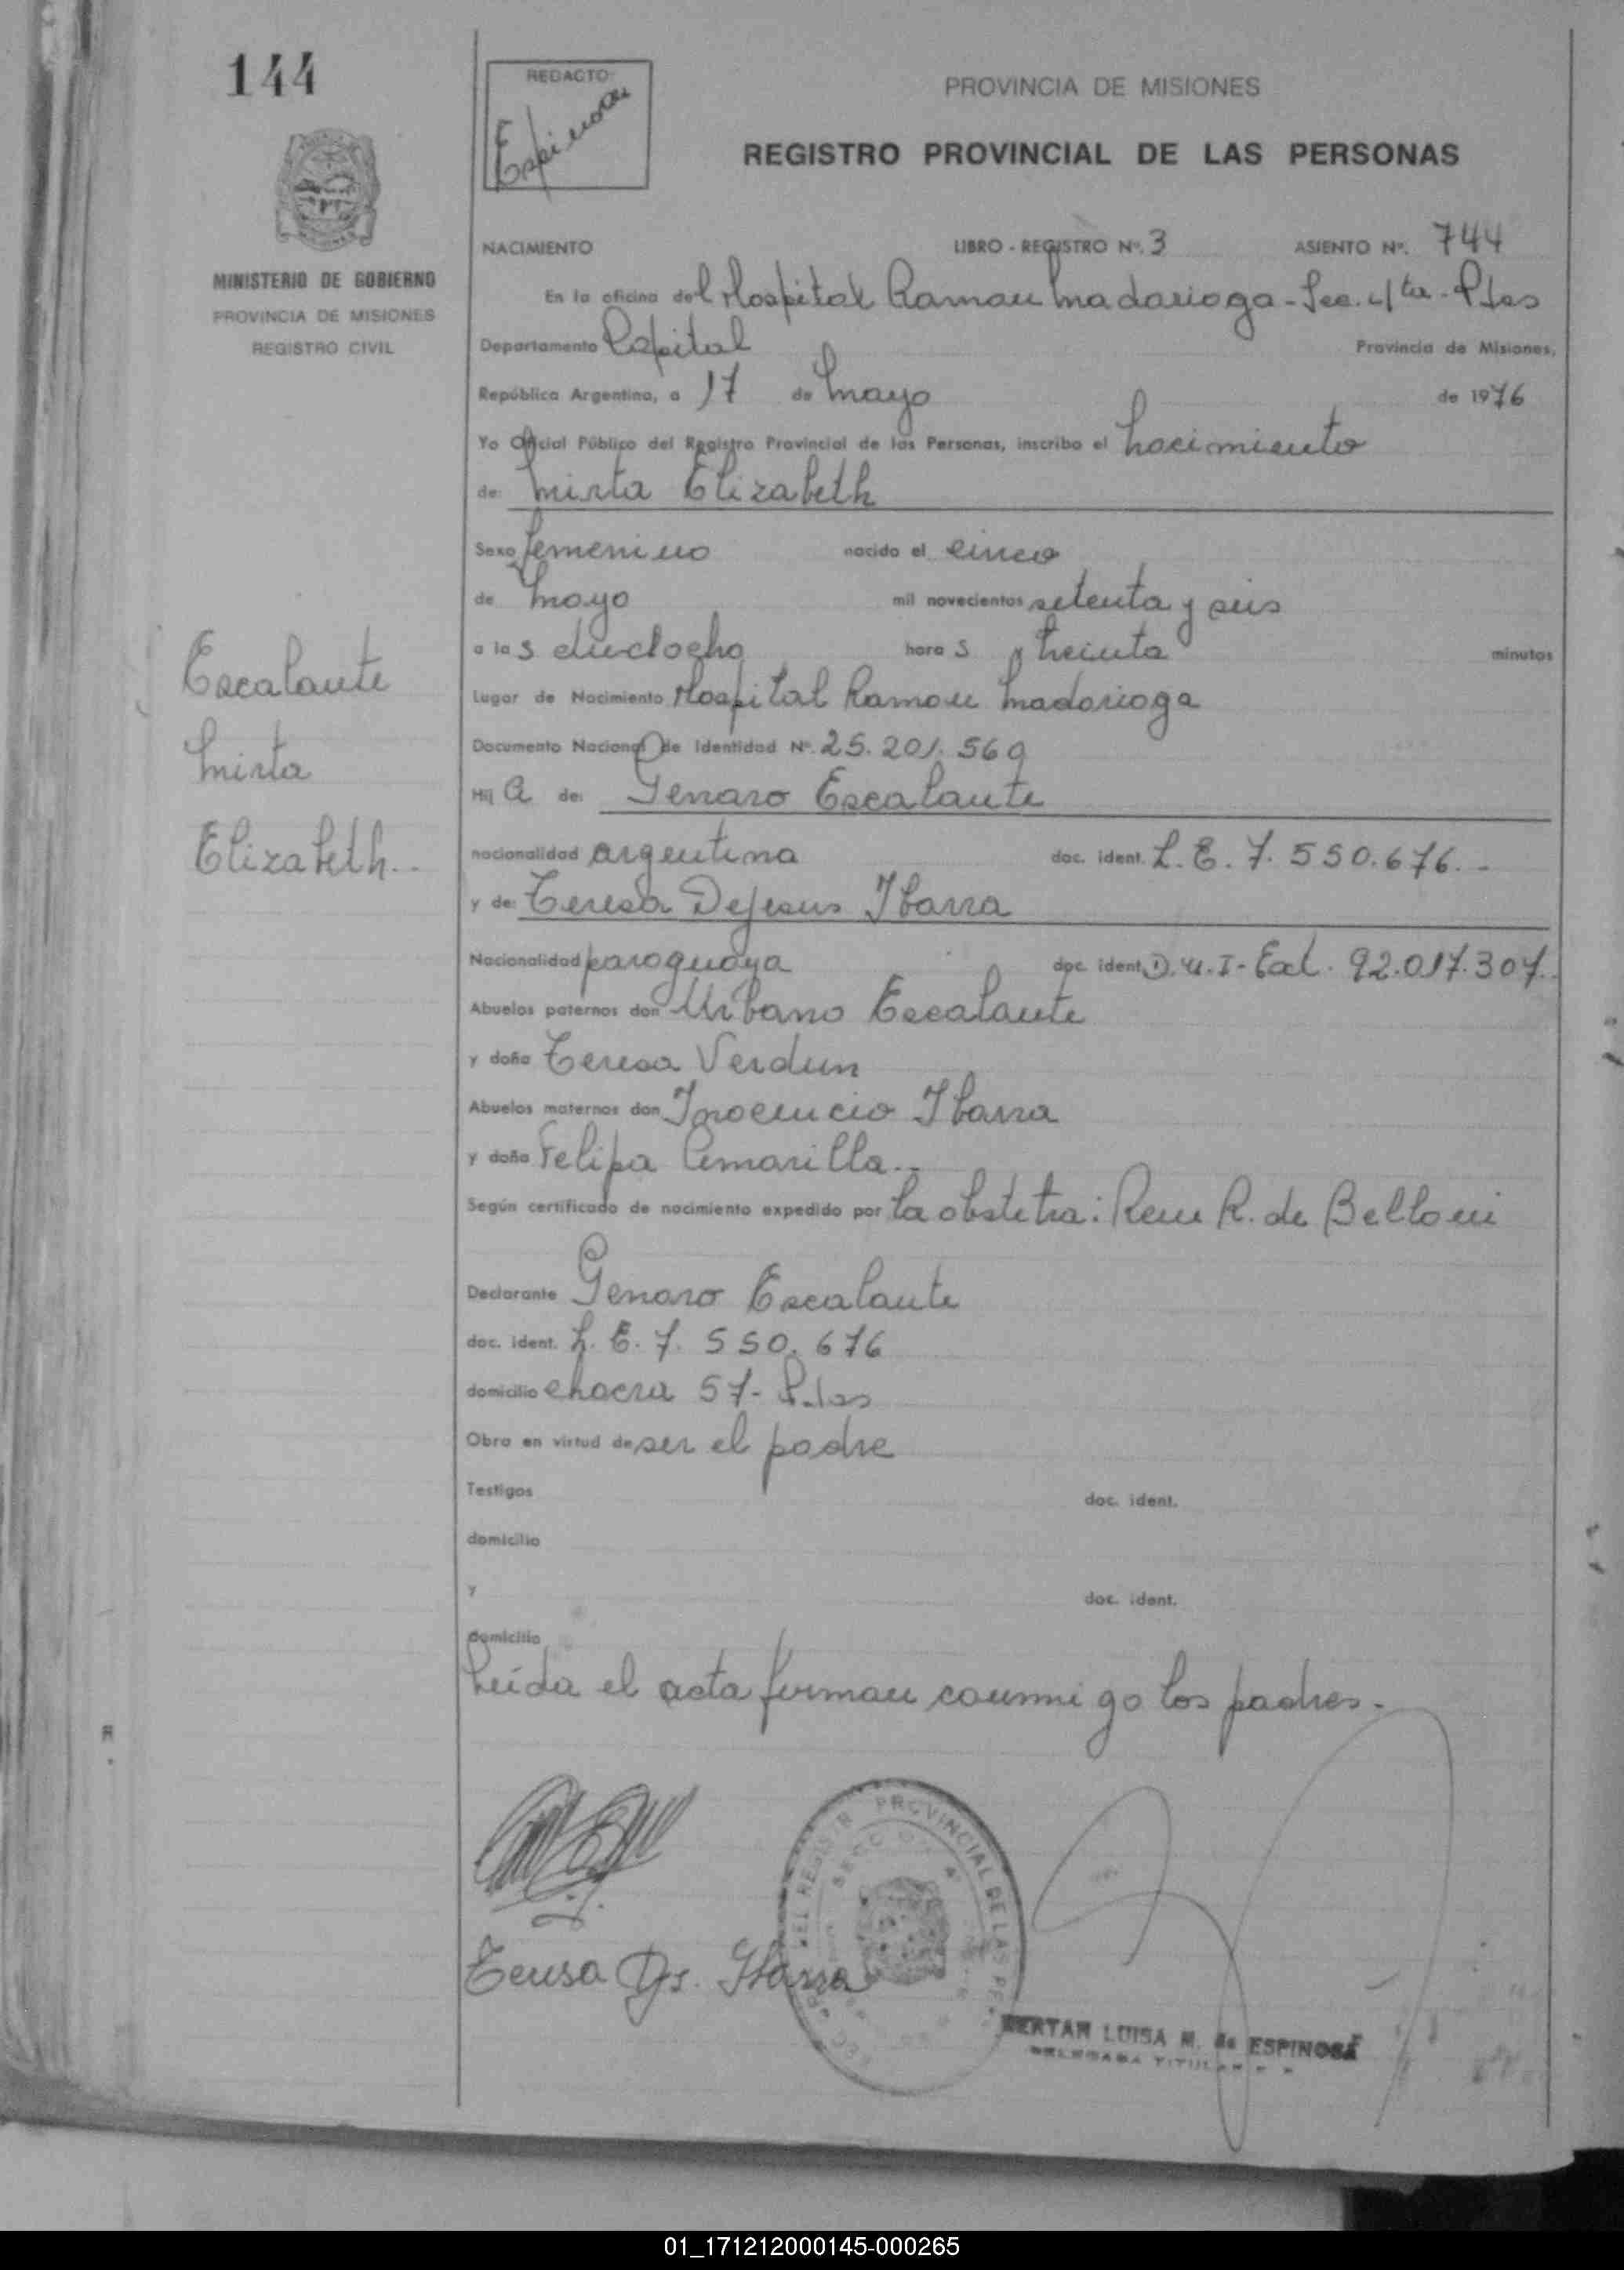 144
REDACTO:
Espinosa
PROVINCIA DE MISIONES
REGISTRO PROVINCIAL DE LAS PERSONAS
MINISTERIO DE GOBIERNO
PROVINCIA DE MISIONES
REGISTRO CIVIL
NACIMIENTO LIBRO - REGISTRO Nº. 3 ASIENTO Nº. 744
En la oficina del Hospital Ramon Madariaga - Sec. 4/ta - P/das
Departamento Capital Provincia de Misiones,
República Argentina, a 17 de Mayo de 1976
Yo Oficial Público del Registro Provincial de las Personas, inscribo el nacimiento
de: Mirta Elizabeth
Sexo femenino nacido el cinco
de Mayo mil novecientos setenta y seis
a las dieciocho horas y treinta minutos
Lugar de Nacimiento Hospital Ramon Madariaga
Documento Nacional de Identidad Nº. 25.201.569
Hija de: Genaro Escalante
nacionalidad argentina doc. ident. L.E. 7.550.676.-
y de: Teresa Dejesus Ibarra
Nacionalidad paraguaya doc. ident. D.N.I - Ext. 92.017.307.
Abuelos paternos don Urbano Escalante
y doña Teresa Verdun
Abuelos maternos don Inocencio Ibarra
y doña Felipa Amarilla.-
Según certificado de nacimiento expedido por la obstetra: Rene R. de Belloni
Declarante Genaro Escalante
doc. ident. L.E. 7.550.676
domicilio chacra 57- P.das
Obra en virtud de ser el padre
Testigos doc. ident.
domicilio
y doc. ident.
domicilio
Leída el acta firman conmigo los padres.-
Escalante
Mirta
Elizabeth..
Teresa Djs. Ibarra
PROVINCIAL DE LAS PE
BERTAN LUISA M. de ESPINOSA
DELEGADA TITULAR
01_171212000145-000265